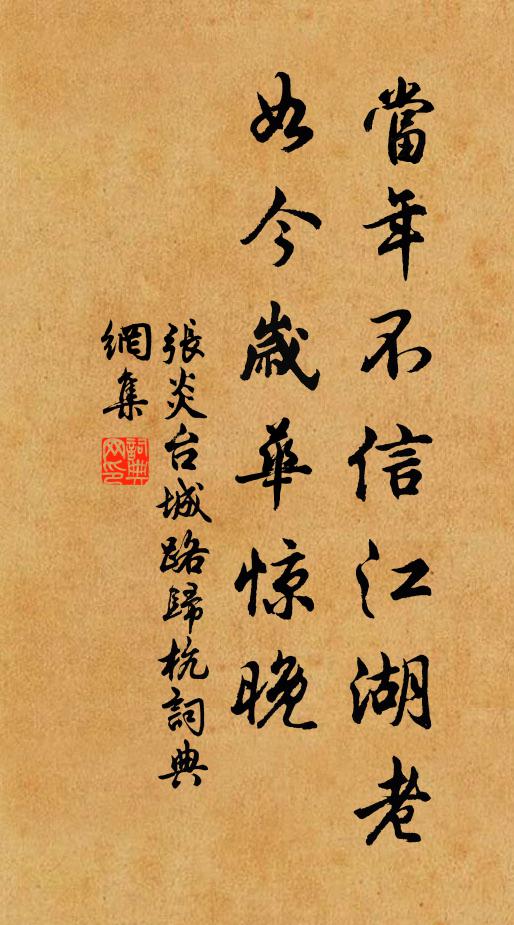 當年不信江湖老
如今歲華惊晚
張炎台城路歸杭詞典
網集
詞典
网印